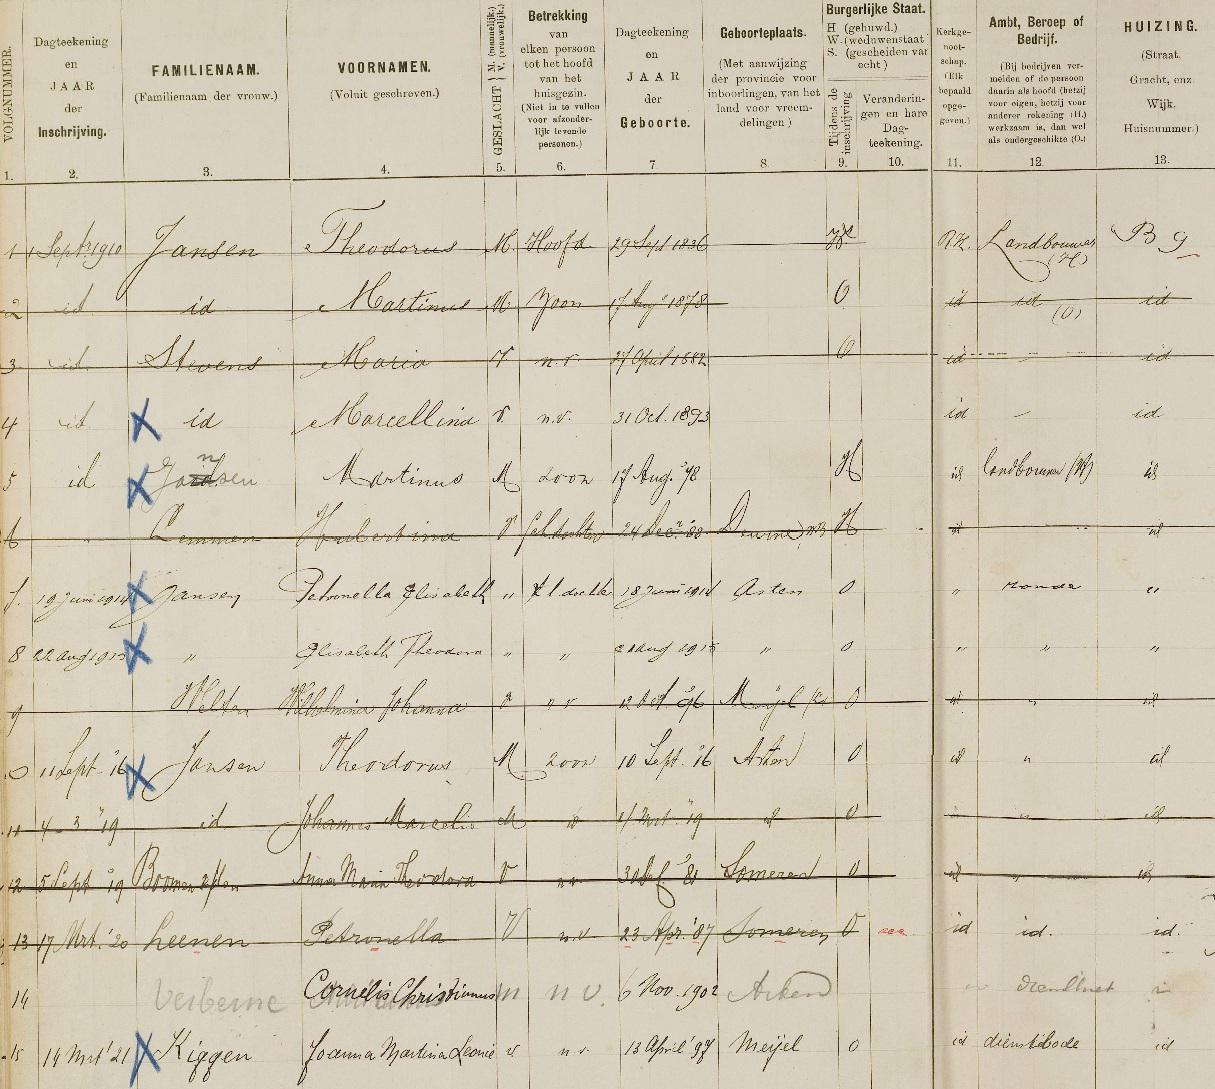 VOLGNUMMER.
Dagteekening
en
JAAR
der
Inschrijving.
FAMILIENAAM.
(Familienaam der vrouw.)
VOORNAMEN.
(Voluit geschreven.)
GESLACHT { M. (mannelijk.) V. (vrouwelijk.)
Betrekking
van
elken persoon
tot het hoofd
van het
huisgezin.
(Niet in te vullen
voor afzonder-
lijk levende
personen.)
Dagteekening
en
JAAR
der
Geboorte.
Geboorteplaats.
(Met aanwijzing
der provincie voor
inboorlingen, van het
land voor vreem-
delingen.)
Burgerlijke Staat.
H (gehuwd.)
W. (weduwenstaat
S. (gescheiden van
echt)
Tijdens de inschrijving
Veranderin-
gen en hare
Dag-
teekening.
Kerkge-
noot-
schap.
(Elk
bepaald
opge-
geven.)
Ambt, Beroep of
Bedrijf.
(Bij bedrijven ver-
melden of de persoon
daarin als hoofd (hetzij
voor eigen, hetzij voor
anderer rekening (H.)
werkzaam is, dan wel
als ondergeschikte (O.)
HUIZING.
(Straat,
Gracht, enz
Wijk.
Huisnummer.)
1. 2. 3. 4. 5. 6. 7 8. 9. 10. 11. 12. 13.
1 1 Sept. 1910 Jansen Theodorus M Hoofd 29 Sept 1836 R.K. Landbouwer (H) B 9
2 id id Martinus M. Zoon 17 Aug 1878 O id id (O) id
3 id Stevens Maria V. n.v. 27 April 1882 O id - id
4 id id Marcellina V. n.v. 31 Oct. 1893 id - id
5 id Jansen Martinus M zoon 17 Aug. '78 H id landbouwer (H) id
6 " Lemmen Hubertina V 24 Dec. '88 H id id
7. 19 Juni 1914 Jansen Petronella Elisabeth " dochter 18 Juni 1914 Asten O " zonder "
8 22 aug 1915 " Elisabeth Theodora " " aug 1915 " O " " "
9 Welten Wilhelmina Johanna V " v 12 Oct. '96 Meijel O id " id
11 Sept '16 Jansen Theodorus M zoon 10 Sept. '16 Asten O id " id
11 4 - 3 '19 id Johannes Marcelis M id Mrt. '19 id O " id
12 5 Sept '19 Anna Maria Theodora V n.v. '81 Someren O id " id
13 17 Mrt. '20 heenen Petronella V n.v 23 Apr. '87 Someren O id id. id.
14 Verberne Cornelis Christianus m n v. 6 Nov. 1902 Asten
15 14 Mrt '21 Kiggen Joanna Martina Leonie v n.v. 13 April '97 Meijel O id dienstbode id